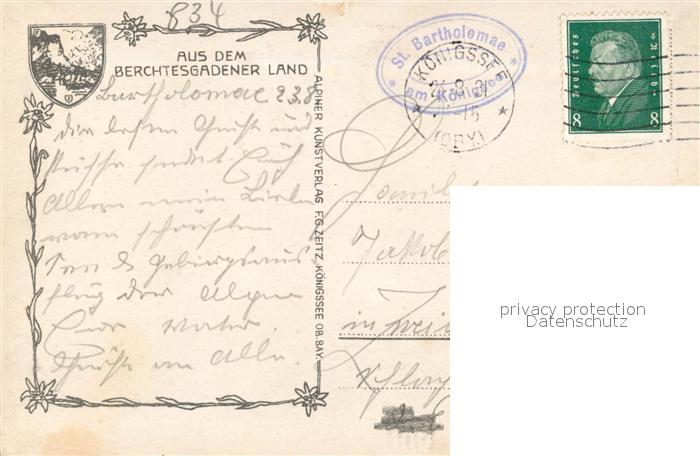 834
AUS DEM
BERCHTESGADENER LAND
Bartholomae 23.8
die besten Grüße und
Küsse sendet Euch
allen mein Lieben
vom schönsten
Gebirgsaus
flug der Alpen
Euer Vater.
Grüße an Alle.
ALPINER KUNSTVERLAG F.G. ZEITZ, KÖNIGSSEE OB. BAY.
St. Bartholomae
am Königssee
KÖNIGSSEE
(OBY)
Deutsches Reich
8 8
Familie
Jakob
in
privacy protection
Datenschutz